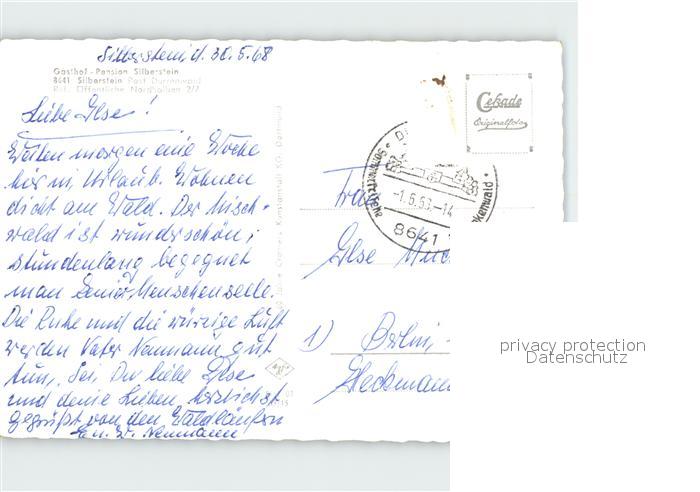 Silberstein, d. 30.5.68
Gasthof - Pension Silberstein
8641 Silberstein Post Dürrenwaid
Bes. Öffentliche Nordhalben 2/7
Cekade
Originalfoto
Liebe Ilse!
Weilen morgen eine Woche
hier in Urlaub. Wohnen
dicht am Wald. Der Misch-
wald ist wunderschön;
stundenlang begegnet
man keiner Menschenseele.
Die Ruhe und die würzige Luft
werden Vater Neumann gut
tun. Sei Du liebe Ilse
und deine Lieben herzlichst
gegrüßt von den Waldläufern
E. u. W. Neumann
Sommerfrische
-1.6.68.-14
8641
Frau
Ilse
1) Berlin,
Heckmann
privacy protection
Datenschutz